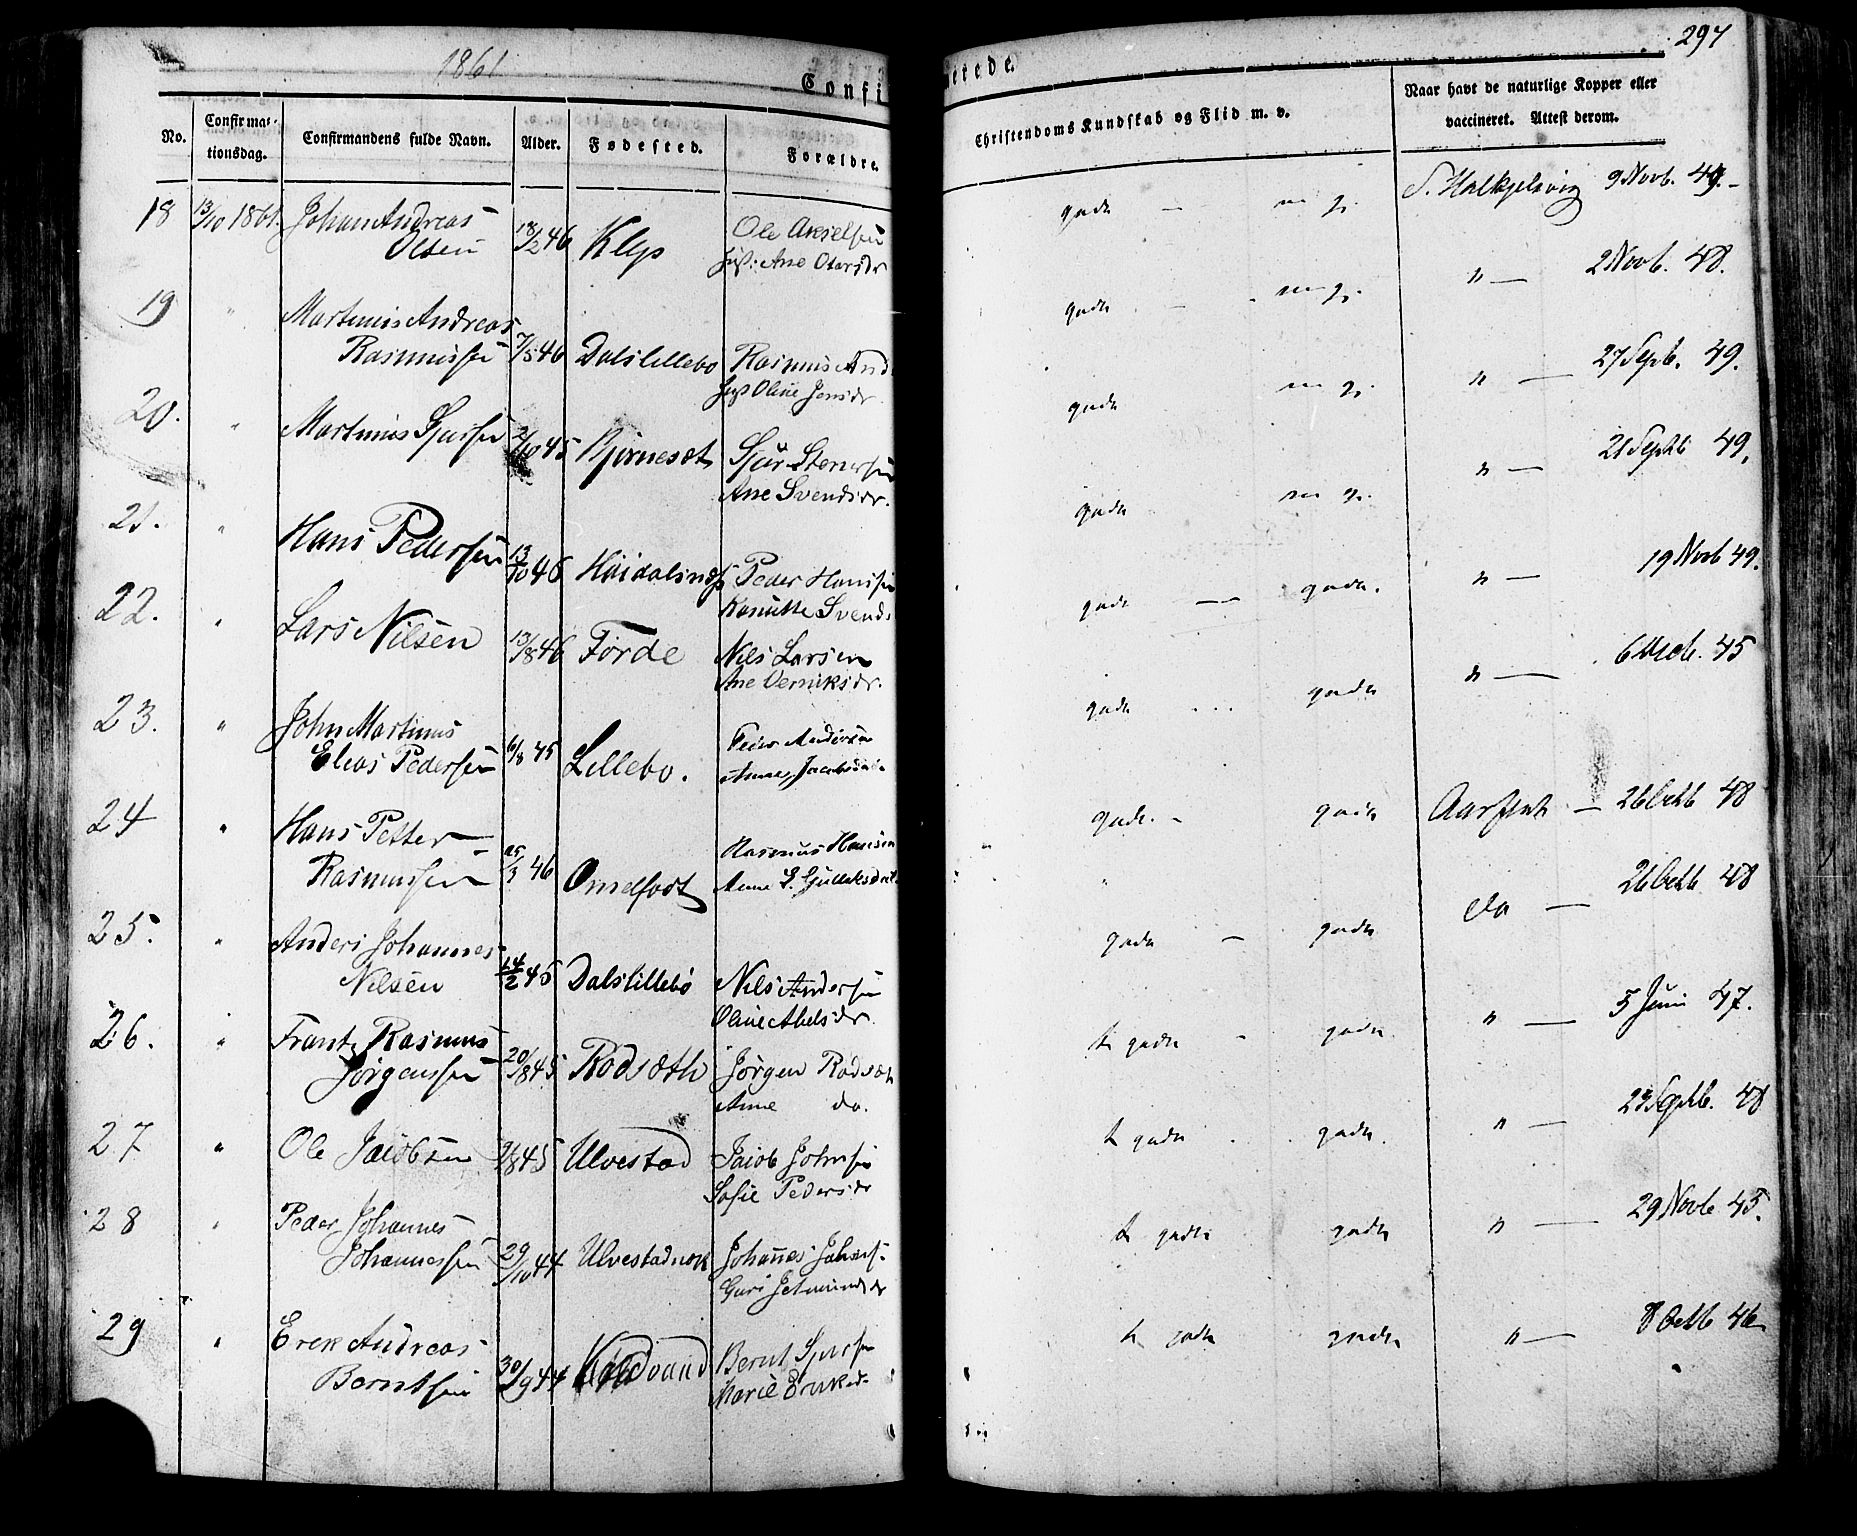 1861
Confi
erede.
297
No.
Confirma-
tionsdag.
Confirmandens fulde Navn.
Alder.
Fødested.
Forældre.
Christendoms Kundskab og Flid m. v.
Naar havt de naturlige Kopper eller
vaccineret. Attest derom.
18 13/10 1861. Johan Andreas
Olsen 18/2 46 Klep Ole Akselsen
Ane Olarsdr
gode — m g. S. Halkjelsvig 9 Novb. 49.
19 " Martinus Andreas
Rasmussen 7/5 46 Dalslillebo Rasmus And
Oline Jensdr
gode - m g. " — 2 Novb. 48.
20. " Martinus Sjursen 2/10 45 Bjørneset Sjur Stenersen
Ane Svendsdr.
gode m g. " — 27 Septb. 49.
21. " Hans Pedersen 13/10 46 Høidalsnes Peder Hansen
Svends
gode m g. " — 21 Septb 49,
22. " Lars Nilsen 13/8 46 Førde Nils Larsen
Ane
gode — gode. " — 19 Novb 49.
23. " John Martinus
Elias Pedersen 6/8 45 Lillebo. Peder Andersen
Anne Jacobsdatr
gode ... gode " — 6 Decb. 45
24 " Hans Petter
Rasmussen 25/3 46 Omelfodt Rasmus Hansen
Anne
gode. - gode Aarflot — 26 Octb 48
25. " Anders Johannes
Nilsen 14/2 45 Dalslillebö Nils Andersen
Oline Abelsdr.
gode - gode do — 26 Octb 48
26. " Frantz Rasmus
Jørgensen 20/8 45 Rødsæth Jørgen Rødsæt
Anne do.
t gode - gode " — 5 Juni 47.
27 " Ole Jacobsen 2/8 45 Ulvestad Jacob Johnsen
Sofie Pedersdr
t gode . gode. " — 23 Septb. 48
28 " Peder Johannes
Johannessen 29/10 44 Ulvestadnok Johannes Johans.
Guri Jetmundsdr
t gode gode " — 29 Novb 45.
29 " Erek Andreas
Berntsen 30/9 44 Kaldvand Bernt Sjursen
Marie
t gode gode " — 8 Octb 46